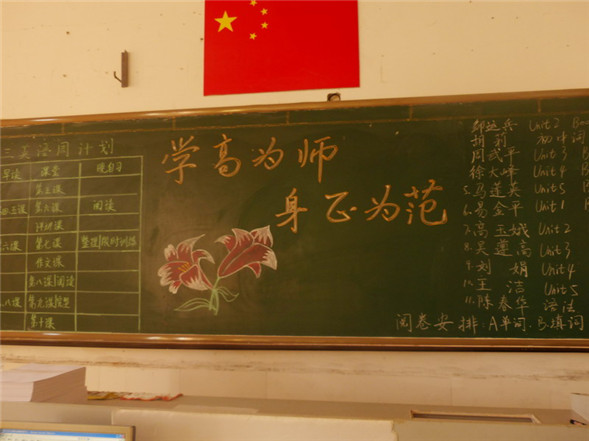 三英语周计划
早读 课堂 晚自习
第五课
第六课 阅读
评讲课
六课 第七课 整理|限时训练
作文课
第八课|阅读
八课
第十课
学高为师
身正为范
Unit 2
初中词
周武平 Unit 3
徐大峰 Unit 4
5. 马莲英 Unit 5
6. 易金平 Unit 1
7. 高玉娥 Unit 2
8. 吴莲高 Unit 3
9. 刘娟 Unit 4
10. 王洁 Unit 5
11. 陈春华 语法
阅卷安排:A单词、B填词